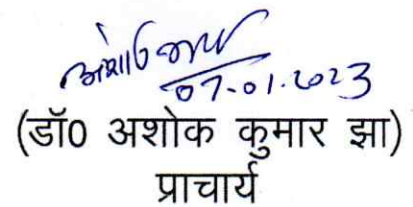 07-01-2023
(डॉ0 अशोक कुमार झा)
प्राचार्य